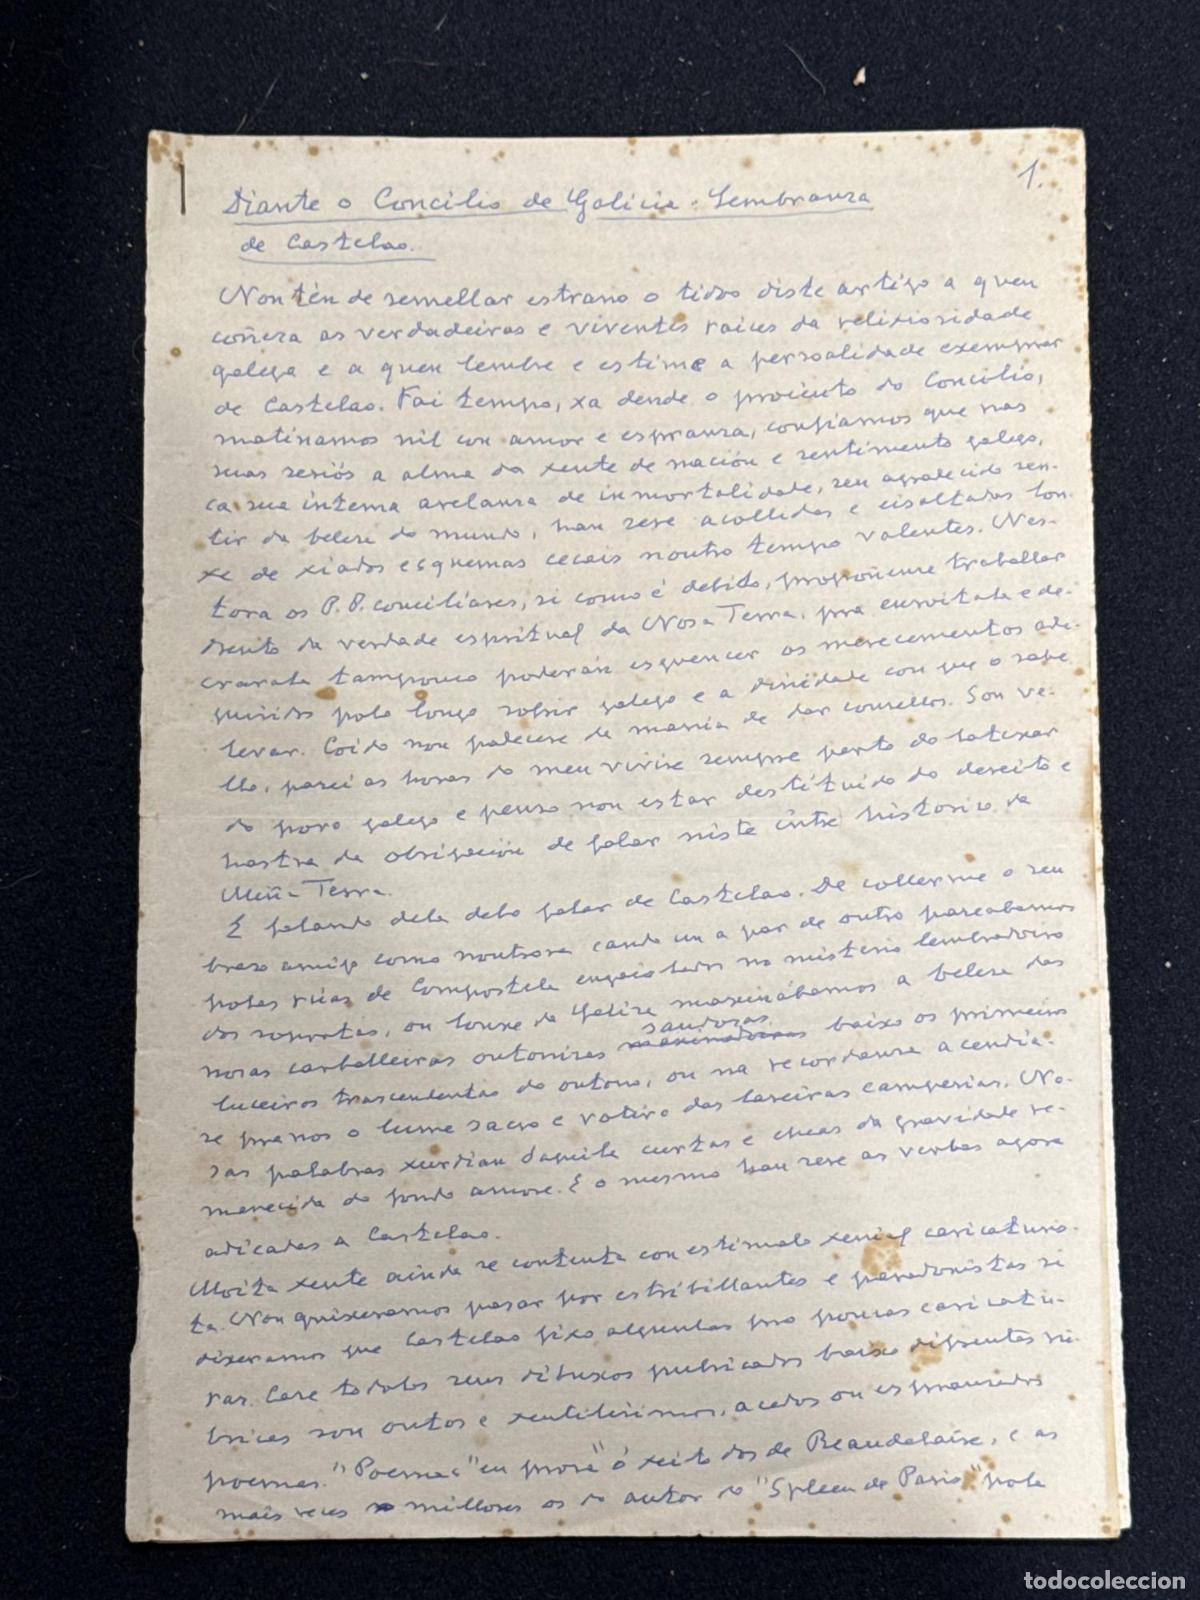 1.
Diante o Concilio de Galicia. Lembranza
de Castelao.
Non tén de semellar estrano o tidoo diste artigo a quen
coñeza as verdadeiras e viventes raices da relixiosidade
galega e a quen lembre e estime a persoalidade exemprar
de Castelao. Fai tempo, xa dende o proieuto do Concilio,
matinamos nil con amor e espranza, confiamos que nas
suas sesiós a alma da xente de nación e sentimento galego,
ca sua intema arelanza de inmortalidade, seu agradecido sen-
tir da beleza do mundo, han sere acollidas e eisaltadas lon-
xe de xiados esquemas cecais noutro tempo valentes. Nes-
tora os P.P. conciliares, si como é debido, propoñense traballar
dentro da verdade espritual da Nosa Terra, pra
tampouco poderán esquencer os merecementos adi-
quiridos polo longo sofrir galego e a dinidade con que o sape
levar. Coido non padecere da mania de dar consellos. Son ve-
llo, pasei as horas do meu vivire sempre perto do latexar
do povo galego e penso non estar destituido do dereito e
hastra da obrigación de falar niste intre histórico da
Miña Terra.
E falando dela debo falar de Castelao. De collerme o seu
brazo amigo como noutrora cando un a par de outro paseabamos
polas rúas de Compostela engaiolados no misterio lembradoiro
dos soportas, ou lonxe da Galiza maxinábamos a beleza das
nosas carballeiras outonizas saudosas baixo os primeiros
luceiros trascendentas do outono, ou na recordanza acendía-
se pra nos o lume sacro e votivo das lareiras campesías. No-
sas palabras xurdían daquila curtas e cheas da gravidade re-
manecida do fondo amore. E o mesmo han sere as verbas agora
adicadas a Castelao.
Moita xente ainda se contenta con estimalo xenial caricaturis-
ta. Non quixeramos pasar por estribillantes e paradonistas si
dixeramos que Castelao fixo algunhas pro poucas caricatu-
ras. Case todolos seus dibuxos pubricados baixo difrentes rú-
bricas son outos e xentilísimos, acedos ou espranzados
poemas. "Poemas" "en prosa" ó xeito dos de Beaudelaire, e as
mais veces millores os do autor do "Spleen de Paris" pola
todocoleccion